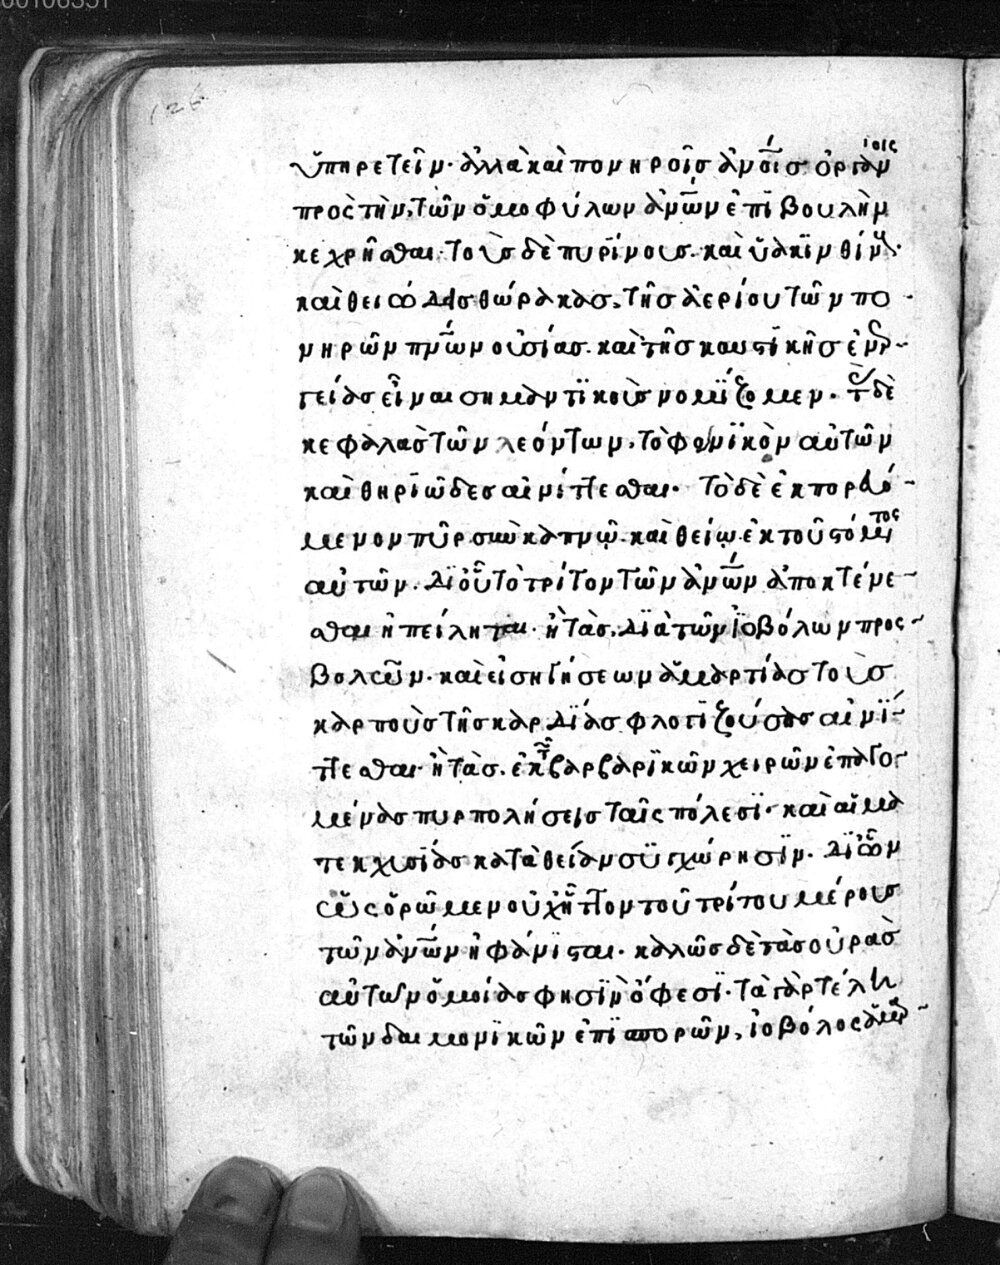 126
ὑπηρετεῖν· ἀλλὰ καὶ πονηροῖς ἀνοις ὀργάνοις
πρὸς τὴν, τῶν ὁμοφύλων ἀνων ἐπιβουλὴν
κεχρῆσθαι· τοὺς δὲ πυρίνους. καὶ ὑακινθίνους·
καὶ θειώδεις θώρακας, τῆς ἀερίου τῶν πο
νηρῶν πνων οὐσίας. καὶ τῆς καυστικῆς ἐνερ
γείας εἶναι σημαντικοὺς νομίζομεν. τὰς δὲ
κεφαλὰς τῶν λεόντων, τὸ φονικὸν αὐτῶν
καὶ θηριῶδες αἰνίττεσθαι· τὸ δὲ ἐκπορευό
μενον πῦρ σὺν καπνῷ. καὶ θείῳ ἐκ τοῦ στόματος
αὐτῶν. δι οὗ τὸ τρίτον τῶν ἀνων ἀποκτένε
σθαι ἠπείληται· ἢ τὰς, διὰ τῶν ἰοβόλων προς
βολῶν. καὶ εἰσηγήσεων ἁμαρτίας τοὺς
καρποὺς τῆς καρδίας φλογιζούσας αἰνί
ττεσθαι· ἢ τὰς. ἐκ τῶν βαρβαρικῶν χειρῶν ἐπαγο
μένας πυρπολήσεις ταῖς πόλεσι· καὶ αἵμα
τεκχυσίας κατὰ θείαν συγχώρησιν. δι ὧν
ὡς ὁρῶμεν οὐχ ἧττον τοῦ τρίτου μέρους
τῶν ἀνων ἠφάνισται· καλῶς δὲ τὰς οὐρὰς
αὐτῶν ὁμοίας φησὶν ὄφεσι· τὰ γὰρ τέλη
τῶν δαιμονικῶν ἐπισπορῶν, ἰοβόλος ἁμαρ